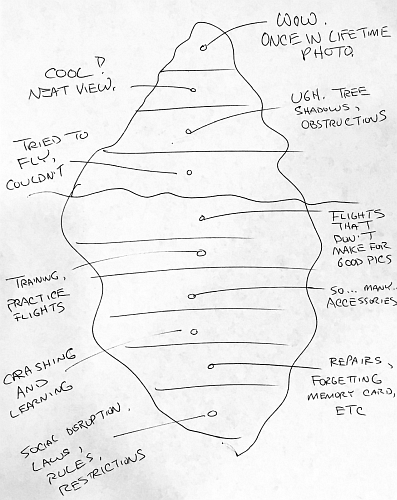 WOW.
ONCE IN LIFETIME
PHOTO.
COOL!
NEAT VIEW.
UGH. TREE
SHADOWS,
OBSTRUCTIONS
TRIED TO
FLY,
COULDN'T
FLIGHTS
THAT
DON'T
MAKE FOR
GOOD PICS
TRAINING,
PRACTICE
FLIGHTS
SO... MANY...
ACCESSORIES
CRASHING
AND
LEARNING
REPAIRS,
FORGETTING
MEMORY CARD,
ETC
SOCIAL DISRUPTION,
LAWS,
RULES,
RESTRICTIONS